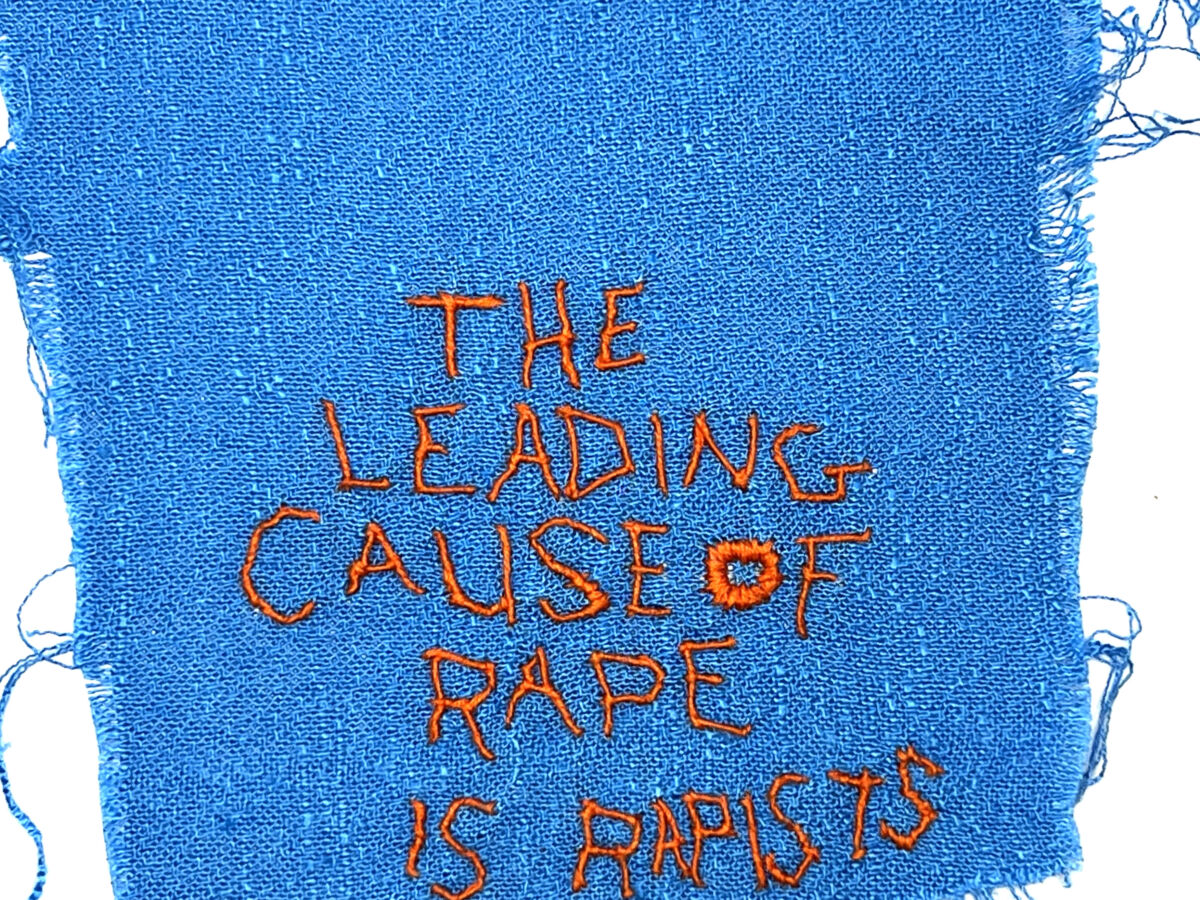 THE
LEADING
CAUSE OF
RAPE
IS RAPISTS